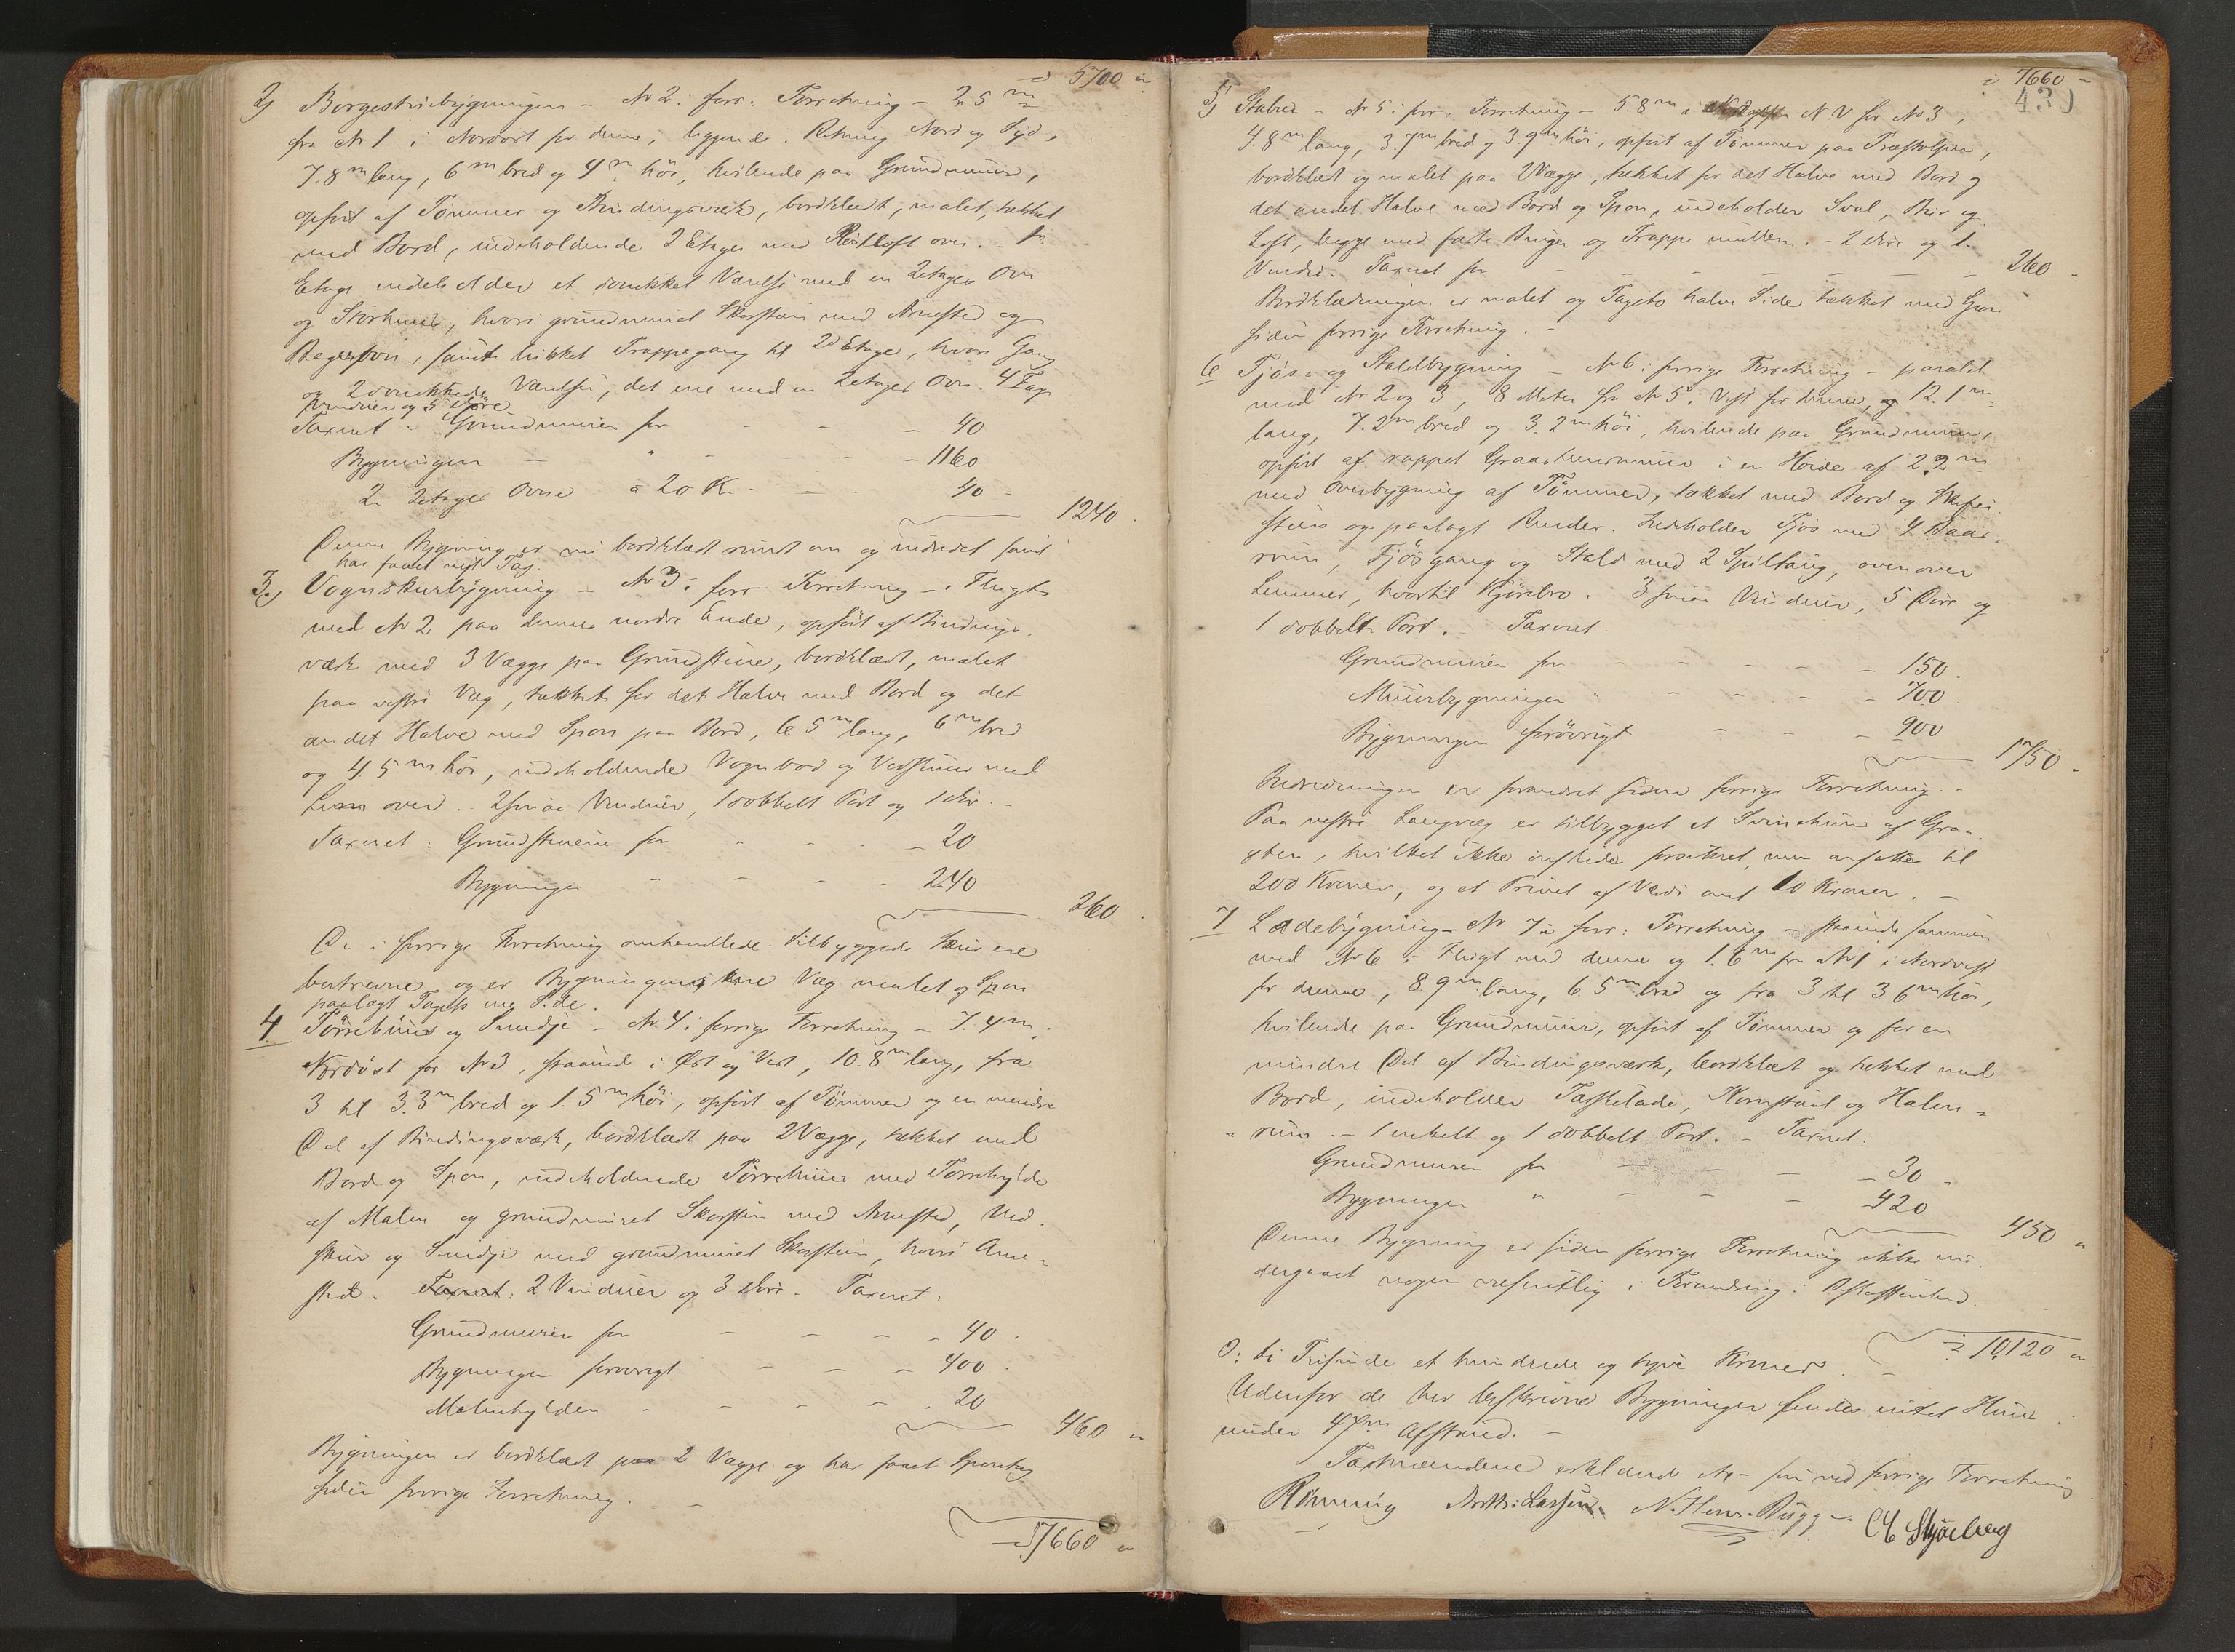 5700 "
2) Borgestuebygningen - No 2 i forr: Forretning - 2.5 m
fra No 1 i Nordvest for denne, liggende i Retning Nord og Syd,
7.8 m lang, 6 m bred og 4 m høi, hvilende paa Grundmuur,
opført af Tømmer og Bindingsverk, bordklædt, malet, tækket
med Bord, indeholdende 2 Etager med Röstloft over. 1ste
Etage indeholder et Værelse med en 2etages Ovn
og Storhuus, hvori grundmuret Skorsteen med Arnested og
Bagerovn, samt lukket Trappegang til 2d Etage, hvor Gang
og 2 Værelser, det ene med en 2etages Ovn. 4 Fag
Vinduer og 5 Døre
Taxeret: Grundmuren for - - - 40
Bygningen - " - - - - 1160
2 2etages Ovne à 20 Kr - - - 40
1240.
Denne Bygning er nu bordklædt rundt om og indredet samt
har faaet nyt Tag.
3) Vognskurbygning - No 3 i forr. Forretning - i Flugt
med No 2 paa dennes nordre Ende, opført af Bindings-
værk med 3 Vægge paa Grundstene, bordklædt, malet
paa vestre Væg, tækket for det Halve med Bord og det
andet Halve med Spon paa Bord, 6.5 m lang, 6 m bred
og 4.5 m høi, indeholdende Vognbod og Vedskuur med
Lem over. 2 smaa Vinduer, 1 dobbelt Port og 1 Dör. -
Taxeret: Grundstenene for - - - 20
Bygningen - - - - 240
260.
De i forrige Forretning omhandlede tilbyggede ere
og er Bygningens ene Væg malet og Spon
paalagt Tagets ene Side.
4 Törrehuus og Smedje - No 4 i forrige Forretning - 7.4 m
Nordöst for No 3, staaende i Øst og Vest, 10.8 m lang, fra
3 til 3.3 m bred og 1.5 m høi, opført af Tömmer og en mindre
Del af Bindingsværk, bordklædt paa 2 Vægge, tækket med
Bord og Spon, indeholdende Törrehuus med Törrehylde
af Malm og grundmuret Skorsten med Arnested, Ved-
skur og Smedje med grundmuret Skorsten, hvori Arne-
sted. Taxeret: 2 Vinduer og 3 Döre. Taxeret:
Grundmuren for - - - - 40.
Bygningen forøvrigt - - - 400.
Malmhylden - - - - - 20
460 "
Bygningen er bordklædt paa 2 Vægge og har faaet Spontag
siden forrige Forretning. -
7660 "
7660 "
430
5) Stabur - No 5 i forr. Forretning - 5.8 m i N.V for No 3,
4.8 m lang, 3.7 m bred og 3.9 m høi, opført af Tömmer paa Træstolper,
bordklædt og malet paa 2 Vægge, tækket for det Halve med Bord og
det andet Halve med Bord og Spon, indeholder Sval, Bur og
Loft, begge med faste Binger og Trappe mellem. - 2 Döre og 1
Vindu. Taxeret for - - - - - - 260 -
Bordklædningen er malet og Tagets halve Side tækket med Spon
siden forrige Forretning. -
6 Fjös- og Staldbygning - No 6 i forrige Forretning - paralel
med No 2 og 3, 8 Meter fra No 5 i Vest for denne, og 12.1 m
lang, 7.2 m bred og 3.2 m høi, hvilende paa Grundmuur,
opført af rappet Graastensmuur i en Høide af 2.2 m
med Overbygning af Tömmer, tækket med Bord og Skifer-
steen og paalagt Render. Indeholder Fjös med 4 Baas-
rum, Fjösgang og Stald med 2 Spiltaug, ovenover
Lemmer, hvortil Kjörebro. 3 smaa Vinduer, 5 Döre og
1 dobbelt Port. Taxeret
Grundmuren for - - - - - 150.
Muurbygningen " - - - - 700
Bygningen forövrigt - - - 900
1750.
Indredningen er forandret siden forrige Forretning. -
Paa vestre Langvæg er tilbygget et Svinehuus af Graa-
sten, hvilket ikke önskedes forsikret, men ansættes til
200 Kroner, og et Privet af Værdi omt 10 Kroner. -
7 Ladebygning - No 7 i forr: Forretning - staaende sammen
med No 6 i Flugt med denne og 1.6 m fra No 1 i Nordvest
for denne, 8.9 m lang, 6.5 m bred og fra 3 til 3.6 m høi,
hvilende paa Grundmuur, opført af Tömmer og for en
mindre Del af Bindingsværk, bordklædt og tækket med
Bord, indeholder Tasklade, Kornstaal og Halm-
-rum. - 1 enkelt og 1 dobbelt Port. - Taxeret:
Grundmuren for - - - - 30 -
Bygningen " - - - - 420
450 "
Denne Bygning er siden forrige Forretning ikke un-
dergaaet nogen væsentlig Forandring i Beskaffenhed.
10,120 "
O: ti Tusinde et hundrede og tyve Kroner. -
Udenfor de her beskrevne Bygninger findes intet Huus
under 47 m Afstand. -
Taxtmændene erklærede som ved forrige Forretning
Rönning Larsen N. Hans. Bugge C E Skjörberg